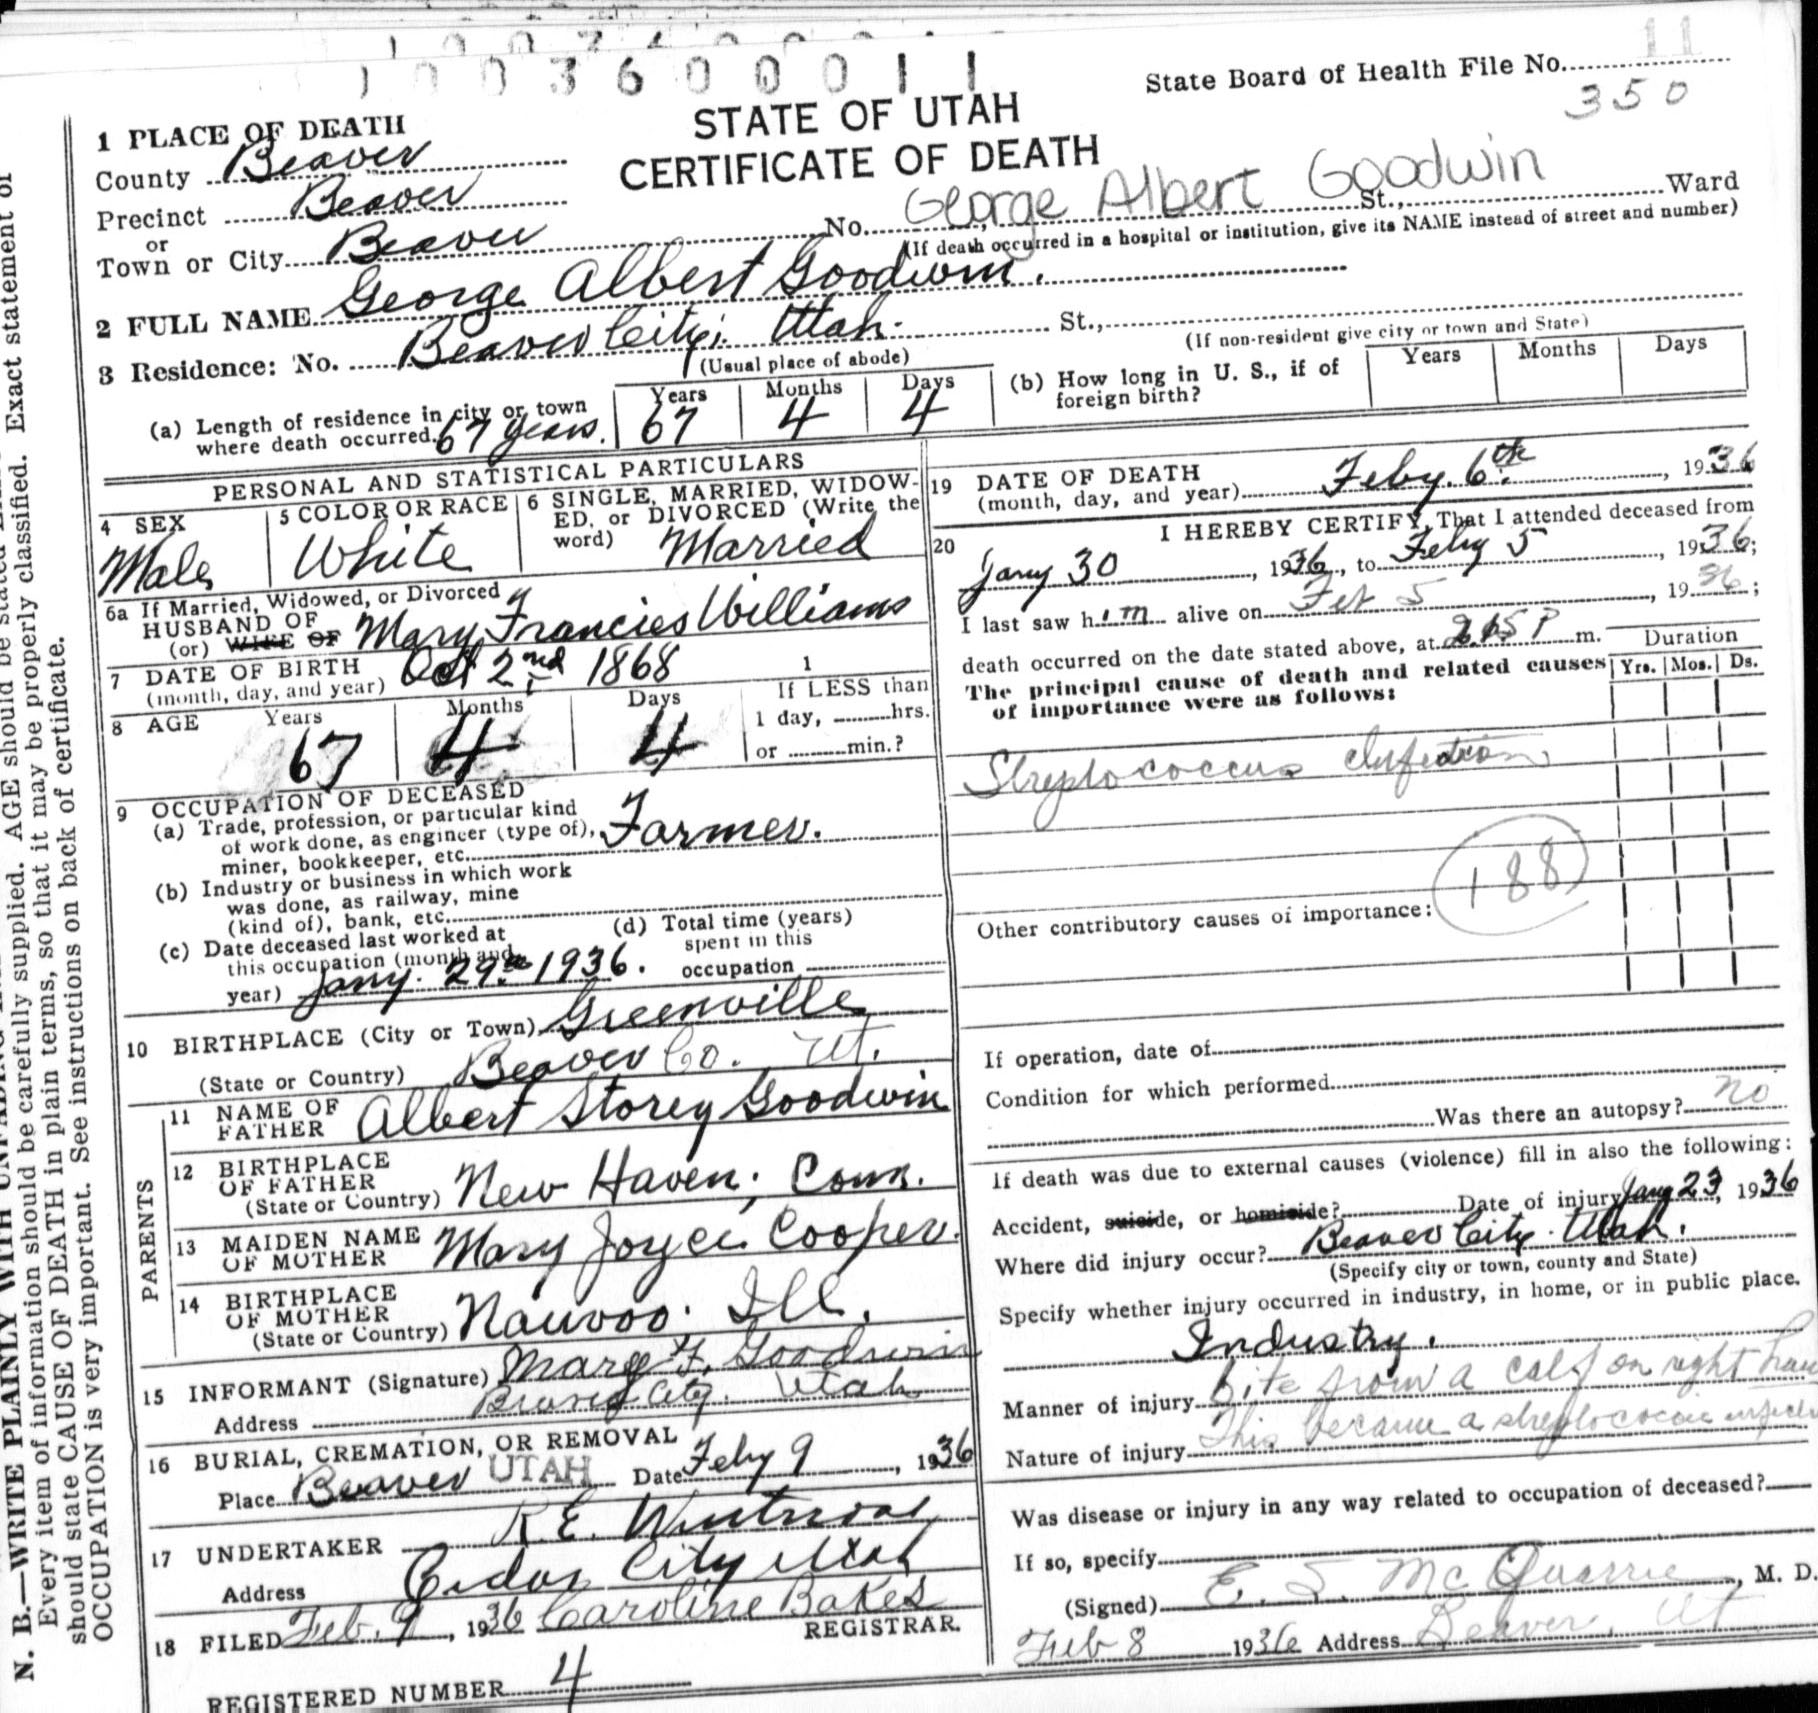 1003600011
State Board of Health File No. 11
350
STATE OF UTAH
CERTIFICATE OF DEATH
1 PLACE OF DEATH
County Beaver
Precinct Beaver
or
Town or City Beaver No. George Albert Goodwin St., Ward
(If death occurred in a hospital or institution, give its NAME instead of street and number)
2 FULL NAME George Albert Goodwin.
3 Residence: No. Beaver City. Utah. St.,
(Usual place of abode) (If non-resident give city or town and State)
(a) Length of residence in city or town where death occurred. 67 years. Years 67 Months 4 Days 4
(b) How long in U. S., if of foreign birth? Years Months Days
PERSONAL AND STATISTICAL PARTICULARS
4 SEX Male
5 COLOR OR RACE White
6 SINGLE, MARRIED, WIDOWED, or DIVORCED (Write the word) Married
6a If Married, Widowed, or Divorced
HUSBAND OF
(or) WIFE OF Mary Francies Williams
7 DATE OF BIRTH
(month, day, and year) Oct 2nd 1868
1
8 AGE Years 67 Months 4 Days 4
If LESS than
1 day, hrs.
or min.?
9 OCCUPATION OF DECEASED
(a) Trade, profession, or particular kind
of work done, as engineer (type of),
miner, bookkeeper, etc. Farmer.
(b) Industry or business in which work
was done, as railway, mine
(kind of), bank, etc.
(c) Date deceased last worked at
this occupation (month and
year) Jany. 29th 1936.
(d) Total time (years)
spent in this
occupation
10 BIRTHPLACE (City or Town) Greenville
(State or Country) Beaver Co. Ut.
PARENTS
11 NAME OF
FATHER Albert Storey Goodwin
12 BIRTHPLACE
OF FATHER
(State or Country) New Haven, Conn.
13 MAIDEN NAME
OF MOTHER Mary Joyce Cooper.
14 BIRTHPLACE
OF MOTHER
(State or Country) Nauvoo. Ill.
15 INFORMANT (Signature) Mary F. Goodwin
Address Beaver City. Utah
16 BURIAL, CREMATION, OR REMOVAL
Place Beaver UTAH Date Feby 9, 1936
17 UNDERTAKER R E.
Address Cedar City Utah
18 FILED Feb. 9, 1936 Caroline Bakes
REGISTRAR.
REGISTERED NUMBER 4
19 DATE OF DEATH
(month, day, and year) Feby. 6th, 1936
20 I HEREBY CERTIFY, That I attended deceased from
Jany 30, 1936, to Feby 5, 1936;
I last saw him alive on Feb 5, 1936;
death occurred on the date stated above, at P m.
Duration
Yrs. Mos. Ds.
The principal cause of death and related causes
of importance were as follows:
Streptococcus Infection
188
Other contributory causes of importance:
If operation, date of
Condition for which performed
Was there an autopsy? no
If death was due to external causes (violence) fill in also the following:
Accident, suicide, or homicide? Date of injury Jany 23, 1936
Where did injury occur? Beaver City. Utah.
(Specify city or town, county and State)
Specify whether injury occurred in industry, in home, or in public place.
Industry.
Manner of injury bite from a calf on right
Nature of injury This became a streptococcic
Was disease or injury in any way related to occupation of deceased?
If so, specify
(Signed) E. S. McQuarrie, M. D.
Feb 8 1936 Address Beaver, Ut
N. B.—WRITE PLAINLY WITH
Every item of information should be carefully supplied. AGE should be stated Exact statement of
should state CAUSE OF DEATH in plain terms, so that it may be properly classified.
OCCUPATION is very important. See instructions on back of certificate.